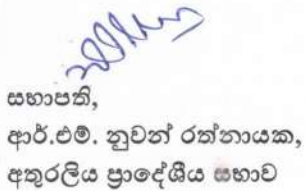 සභාපති,
ආර්.එම්. නුවන් රත්නායක,
අතුරලිය ප්‍රාදේශීය සභාව